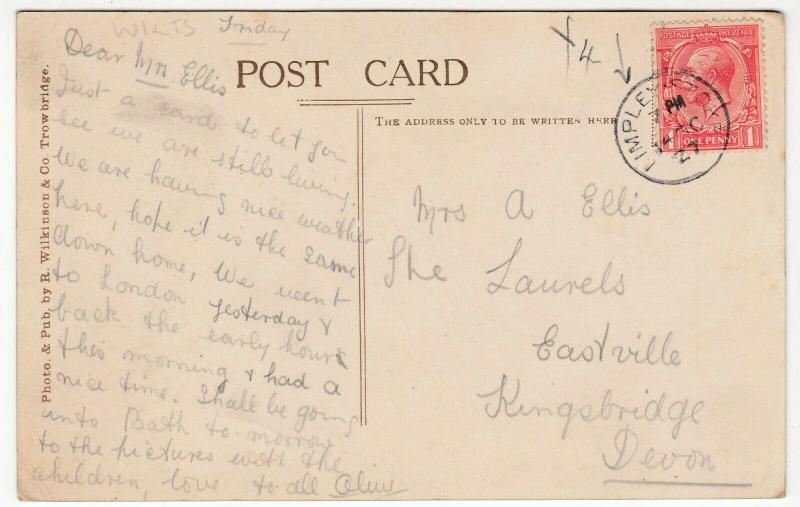 WILTS
Friday
Dear Mrs Ellis
Just a card to let you
see we are still living.
We are having nice weather
here, hope it is the same
down home, We went
to London yesterday &
back the early hours
this morning & had a
nice time. Shall be going
into Bath to-morrow
to the pictures with the
children, love to all Olive
Photo. & Pub. by R. Wilkinson & Co. Trowbridge.
POST CARD
THE ADDRESS ONLY TO BE WRITTEN HERE
4
POSTAGE REVENUE
1 ONE PENNY 1
LIMPLEY STOKE
PM
27
Mrs A Ellis
The Laurels
Eastville
Kingsbridge
Devon